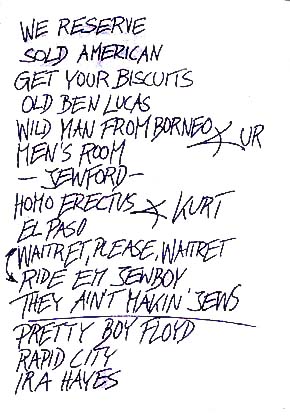 WE RESERVE
SOLD AMERICAN
GET YOUR BISCUITS
OLD BEN LUCAS
WILD MAN FROM BORNEO UR
MEN'S ROOM
— JEWFORD —
HOMO ERECTUS KURT
EL PASO
WAITRET, PLEASE, WAITRET
RIDE EM JEWBOY
THEY AIN'T MAKIN' JEWS
PRETTY BOY FLOYD
RAPID CITY
IRA HAYES